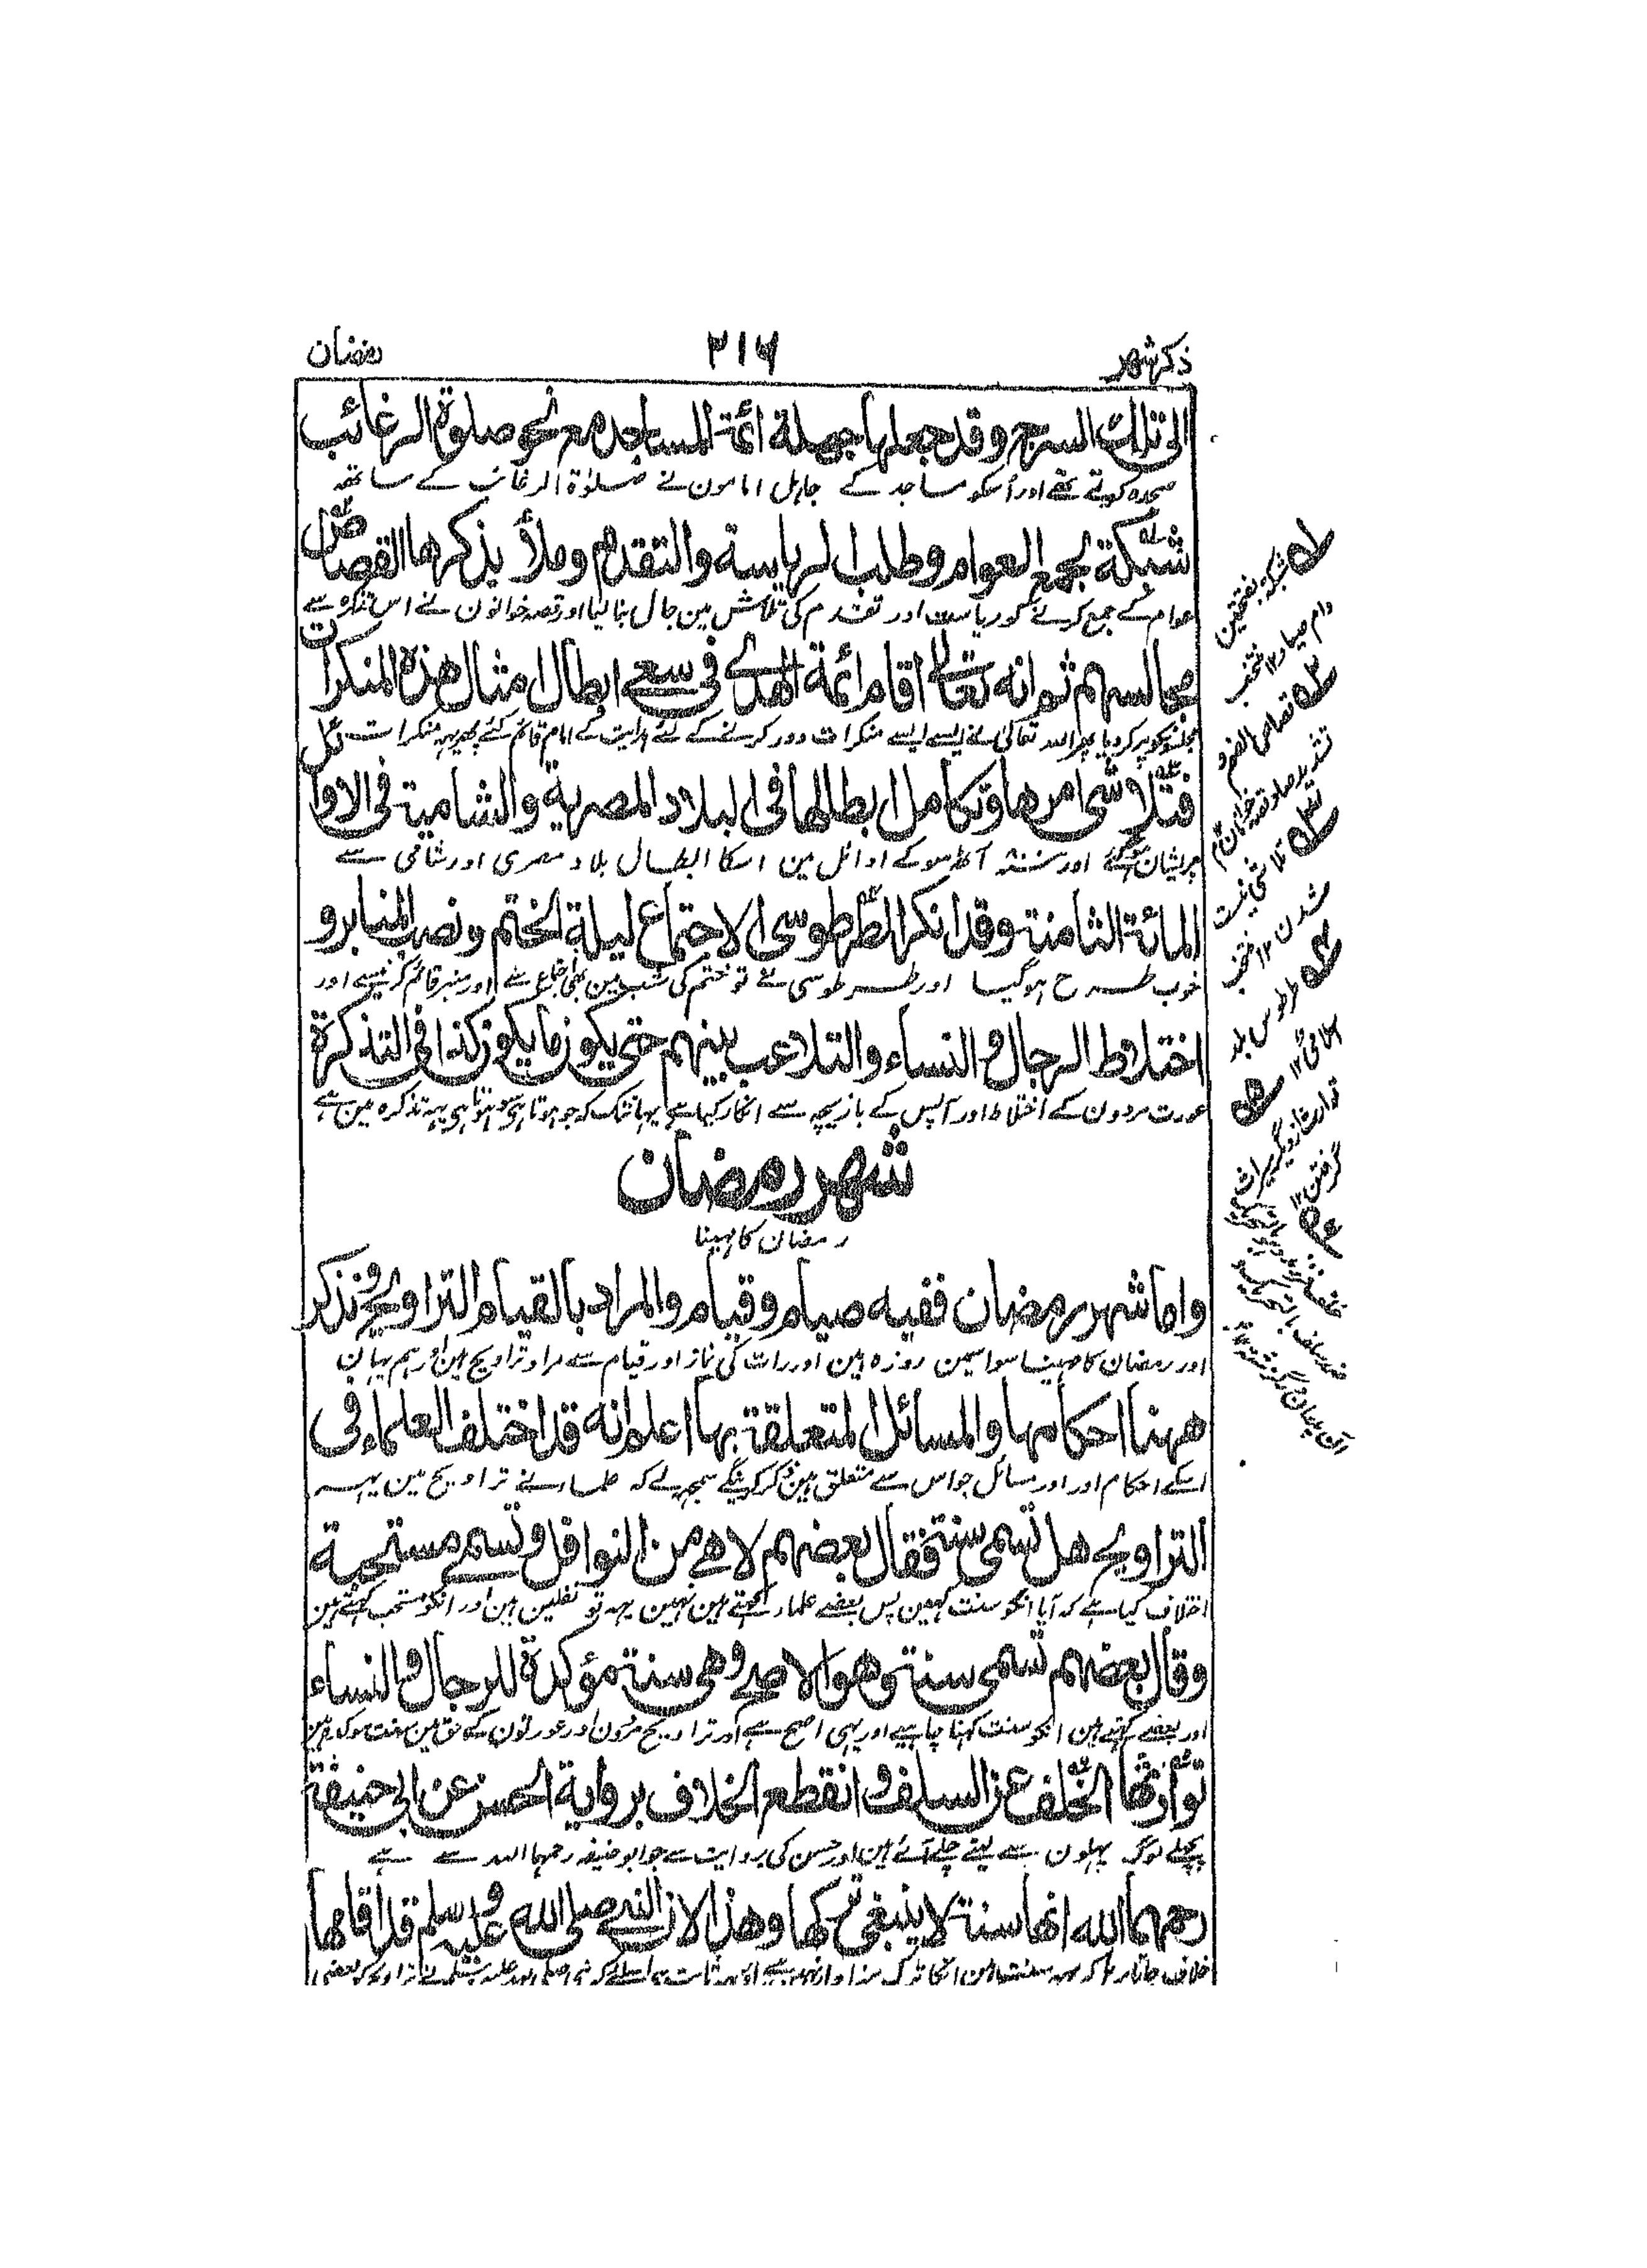 ذکر شهر ۲۱۶ رمضان
الى تلك السرج وقد جعلها جهلة ائمة المساجد مع نحو صلوة الرغائب
سجدہ کرتے تھے اور اسکو مساجد کے جاہل امامون نے صلوٰۃ الرغائب کے ساتھہ
شبكة لجمع العوام وطلب الرياسة والتقدم وملأ بذكرها القصاص
عوام کے جمع کرنے کو ریاست اور تقدم کی تلاش مین جال بنا لیا اور قصہ خوانون نے اس تذکرہ سے
مجالسهم ثم انه تعالى اقام ائمة الهدى فى سعى ابطال امثال هذه المنكرات
مجلسونکو پر کردیا پھر اللہ تعالیٰ نے ایسے ایسے منکرات دور کرنے کے لئے ہدایت کے امام قائم کئے پھر یہہ منکرات
فتلاشى امرها وتكامل ابطالها فى البلاد المصرية والشامية فى الاوائل
پریشان ہوگئے اور سنہ آٹھ سو کے اوائل مین اسکا ابطال بلاد مصری اور شامی سے
المائة الثامنة وقد انكر الطرطوسى الاجتماع ليلة الختم ونصب المنابر و
خوب طرح ہوگیا اور طرطوسی نے تو ختم کی شب مین بھی اجتماع سے اور منبر قائم کرنیسے اور
اختلاط الرجال والنساء والتلاعب بينهم حتى يكون ما يكون كذا فى التذكرة
عورت مردون کے اختلاط اور آپس کے بازیچہ سے انکار کیا ہے یہانتک کہ جو ہوتا ہی سو ہوتا ہی یہہ تذکرہ مین ہے
شهر رمضان
رمضان کا مہینا
واما شهر رمضان ففيه صيام وقيام والمراد بالقيام التراويح ونذكر
اور رمضان کا مہینا سو اسمین روزہ ہین اور رات کی نماز اور قیام سے مراد تراویح ہین اور ہم یہان
ههنا احكامها والمسائل المتعلقة بها اعلم انه قد اختلف العلماء فى
اسکے احکام اور اور مسائل جو اس سے متعلق ہین ذکر کرینگے سمجھہ لے کہ علماء نے تراویح مین یہہ
التراويح هل تسمى سنة فقال بعضهم لا هى من النوافل وتسمى مستحبة
اختلاف کیا ہے کہ آیا انکو سنت کہین پس بعضے علماء کہتے ہین نہین یہہ تو نفلین ہین اور انکو مستحب کہتے ہین
وقال بعضهم تسمى سنة وهو الاصح وهى سنة مؤكدة للرجال والنساء
اور بعضے کہتے ہین انکو سنت کہنا چاہیے اور یہی اصح ہے اور تراویح مردون اور عورتون کے حق مین سنت موکدہ ہین
توارثها الخلف عن السلف وانقطع الخلاف برواية الحسن عن ابى حنيفة
پچھلے لوگ پہلون سے لیتے چلے آئے ہین اور حسن کی روایت سے جو ابوحنیفہ رحمہما اللہ سے ہے
رحمهما الله انها سنة لا ينبغى تركها وهذا لان النبى صلى الله عليه وسلم قد اقامها
خلاف جاتا رہا کہ یہہ سنت ہین انکا ترک سزاوار نہین ہے
شبکة بفتحتین
دام صیاد ۱۲ منتخب
قصاص بالضم و
تشدید صاد قصہ خوانان ۱۲
تلاشی نیست
شدن ۱۲ منتخب
طرطوس بلد
اسلامی ۱۲
توارث از یکدیگر میراث
گرفتن ۱۲